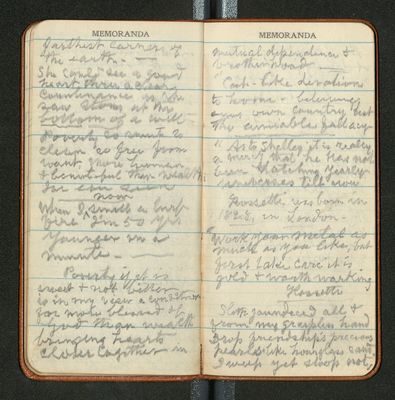 MEMORANDA
farthest corners of
the earth. —
She could see a good
heart thro' a clear
countenance as you
saw stones at the
bottom of a well
Poverty so
clean so free from
want more human
& beautiful than wealth
far ever seen
now
When I smell a
fire "I'm 50 yrs
younger in a
minute. —
Poverty if it is
sweet & not bitter
is in my view a condition
far more blessed of
God than wealth
bringing hearts
closer together in
MEMORANDA
mutual dependence &
brotherhood —
"Cat-like devotion
to home -
own country but
the amiable fallacy
"As to Shelley it is really
a mercy that he has not
been hatching yearly
universes till now
Rossetti was born in
in London.
Work your metal as
much as you like, but
first take care it is
gold & worth working
Rossetti
Sloth jaundiced all &
from my graspless hand
Drop friendship's precious
pearls like hourglass sand
I weep yet stoop not,